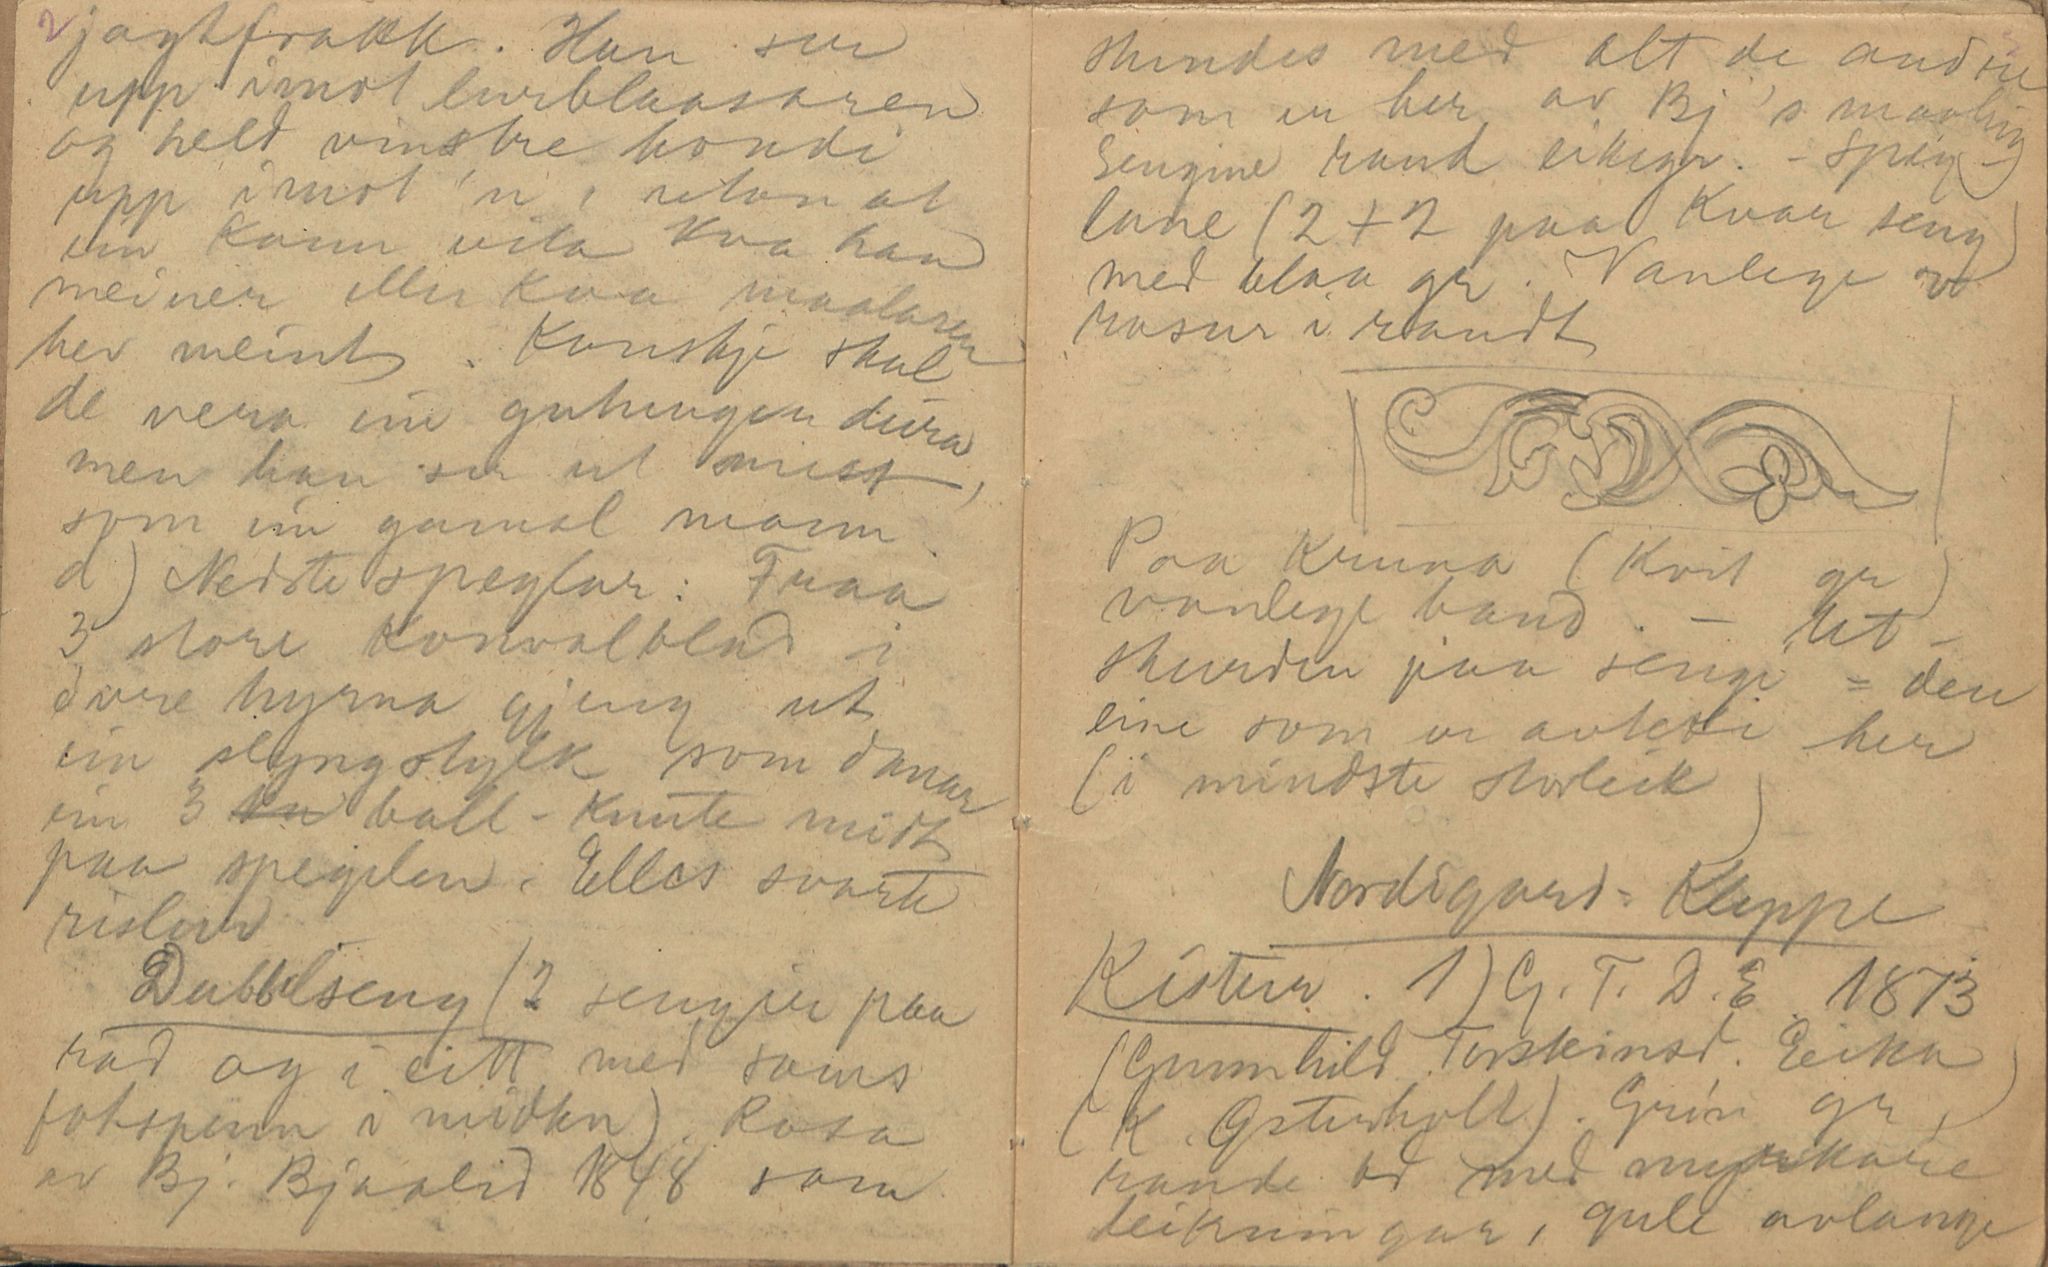 2
jagtfrakk. Han ser
upp imot lurblaasaren
og held vinstre hondi
upp imot 'n, utan at
ein kann vita kva han
meiner eller kva maalaren
hev meint. Kanskje skul
de vera ein gutungen divra
men han ser ut mest,
som ein gamal mann.
d) Nedste speglar: Fraa
3 store konvalblad i
övre hyrna gjeng ut
ein slyngstylk som danar
ein 3 ball-knute midt
paa spegelen. Elles svarte
rislur
Dubbelseng (2 sengjer paa
rad og i eitt med sams
fotspenn i midten). Rosa
av Bj. Bjaalid 1848 som
skundes med alt de andre
som er her av Bj's maaling
Sengine raud eikegr. - Speg-
lane (2 + 2 paa kvar seng)
med blaa gr. Vanlege
rosur i raudt
Paa kruna (kvit gr)
vanlege band. - Ut-
skurden paa sengi = den
eine som er avteikn her
(i mindste storleik)
Nordigard-Kleppe
Kistur. 1) G. T. D. E. 1873
(Gunnhild Torsteinsd. Eika)
(K. Østerholt). Grön gr,
raude bd med myrkare
teikningar, gule avlange